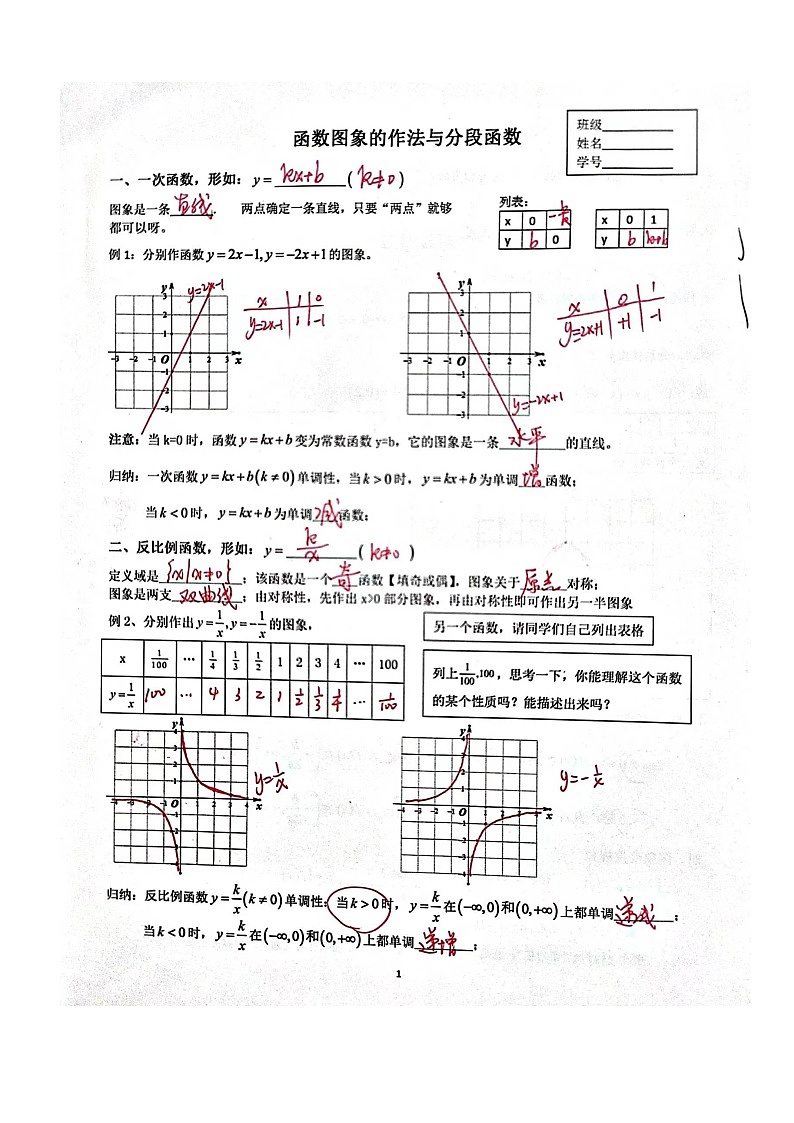 班级
姓名
学号
函数图象的作法与分段函数
一、一次函数，形如：y = kx+b (k≠0)
图象是一条 直线. 两点确定一条直线，只要“两点”就够
都可以呀。
列表：
x 0 -b/k
y b 0
x 0 1
y b k+b
例 1：分别作函数 y = 2x-1, y = -2x+1 的图象。
y=2x-1
x 1 0
y=2x-1 1 -1
x 0 1
y=2x+1 +1 -1
y=-2x+1
注意：当 k=0 时，函数 y = kx+b 变为常数函数 y=b，它的图象是一条 水平 的直线。
归纳：一次函数 y = kx+b(k≠0) 单调性，当 k>0 时，y = kx+b 为单调 增 函数；
当 k<0 时，y = kx+b 为单调 减 函数；
二、反比例函数，形如：y = k/x (k≠0)
定义域是 {x|x≠0}；该函数是一个 奇 函数【填奇或偶】，图象关于 原点 对称；
图象是两支 双曲线；由对称性，先作出 x>0 部分图象，再由对称性即可作出另一半图象
例 2、分别作出 y=1/x, y=-1/x 的图象，
另一个函数，请同学们自己列出表格
x 1/100 … 1/4 1/3 1/2 1 2 3 4 … 100
y=1/x 100 … 4 3 2 1 1/2 1/3 1/4 … 1/100
列上 1/100,100，思考一下，你能理解这个函数
的某个性质吗？能描述出来吗？
y=1/x
y=-1/x
归纳：反比例函数 y=k/x(k≠0) 单调性：当 k>0 时，y=k/x 在 (-∞,0) 和 (0,+∞) 上都单调 递减；
当 k<0 时，y=k/x 在 (-∞,0) 和 (0,+∞) 上都单调 递增；
1